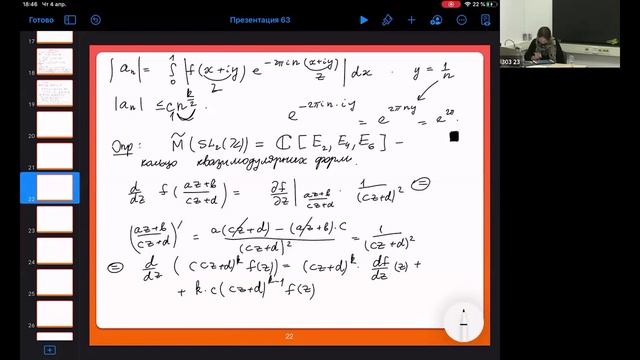 18:46 Чт 4 апр.
22 %
Готово
Презентация 63
|a_n| = ∫_0^1 |f(x+iy) e^{-2πin(x+iy)}| dx . y = 1/n
z
z
|a_n| ≤ c n^{k/2}
e^{-2πin·iy} = e^{2πny} = e^{2π}.
Опр: M̃(SL_2(ℤ)) = ℂ[E_2, E_4, E_6] –
кольцо квазимодулярных форм.
d/dz f((az+b)/(cz+d)) = ∂f/∂z |_{(az+b)/(cz+d)} · 1/(cz+d)^2 =
((az+b)/(cz+d))' = (a(cz+d) – (az+b)·c)/(cz+d)^2 = 1/(cz+d)^2
= d/dz ((cz+d)^k f(z)) = (cz+d)^k · df/dz (z) +
+ k·c(cz+d)^{k-1} f(z)
22
17
18
19
20
21
22
23
24
25
26
303 23